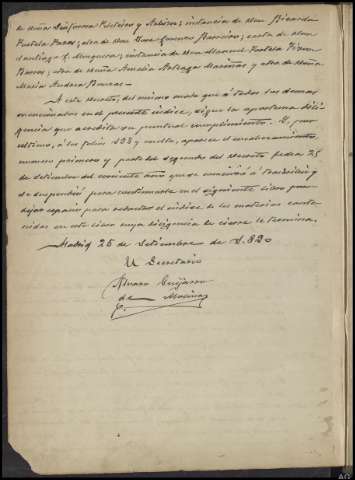 de Doña Sinforosa Piñeiro y Patiño; instancia de Don Ricardo
Portela Pazos; otra de Don José Gómez Barreiro; carta de Don
Santiago F. Munguira; instancia de Don Manuel Portela Pérez
Barros; otra de Doña Amelia Astraga Mariñas y otra de Doña
María Andrea Barros.-
A este decreto, del mismo modo que á todos los demas
mencionados en el presente índice, sigue la oportuna dili-
gencia que acredita su puntual cumplimiento. Y, por
ultimo, á los folios 498 y vuelto, aparece el encabezamiento,
numero primero y parte del segundo del decreto fecha 25
de Setiembre del corriente año que se comenzó á trascribir y
se suspendió para continuarle en el siguiente libro para
dejar espacio para extractar el indice de las materias conte-
nidas en este libro cuya diligencia de cierre le termina.
Madrid 25 de Setiembre de 1.820
El Secretario
Alvaro Guijarro
de Molina